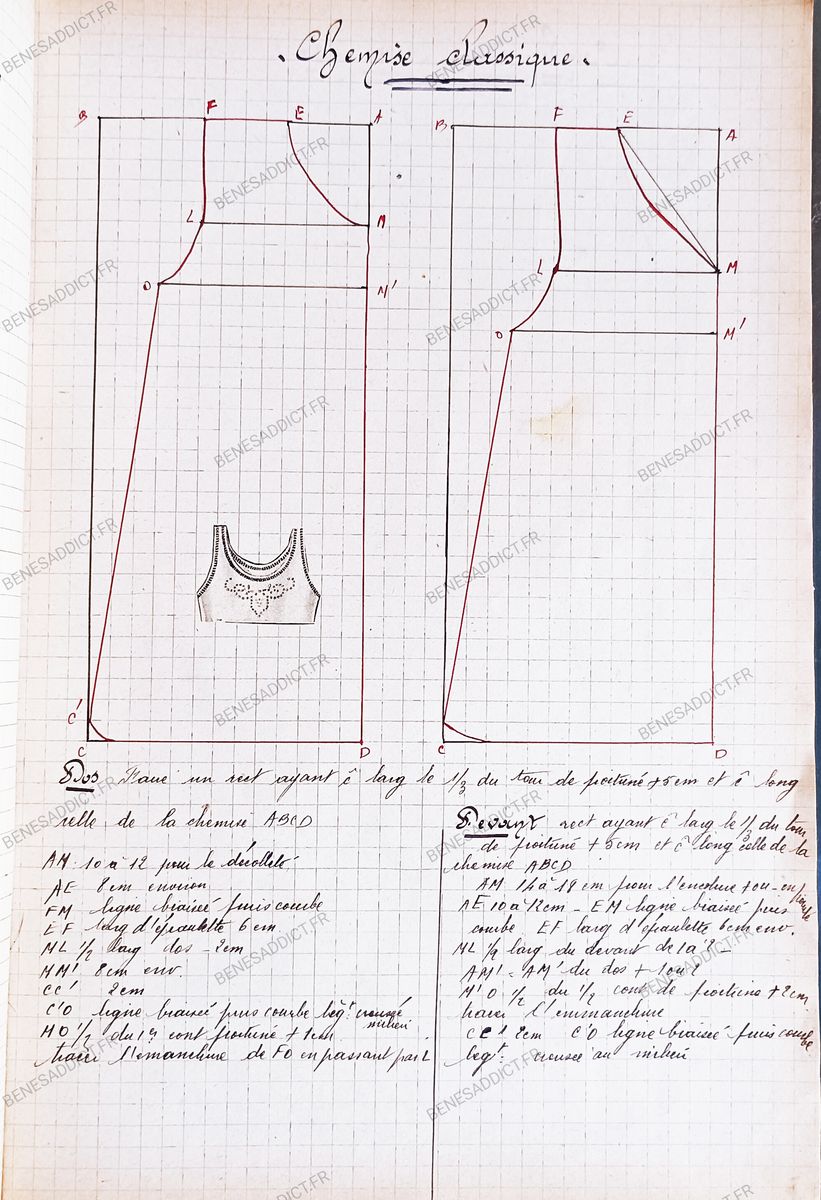 Chemise classique
B F E A
B F E A
L M
L M
O M'
O M'
C'
C D
C D
Dos un rect ayant ĉ larg le 1/3 du tour de poitrine + 5cm et ĉ long
celle de la chemise ABCD
AM 10 à 12 pour le décolleté
AE 8cm environ
FM ligne biaisée puis courbe
EF larg d'épaulette 6 cm
ML 1/2 larg dos - 2cm
MM' 8cm env.
CC' 2cm
C'O ligne biaisée puis courbe légt creusée
milieu
MO 1/2 du cont poitrine + 1cm
tracer l'emanchure de FO en passant par L
Devant rect ayant ĉ larg le 1/3 du tour
de poitrine + 5cm et ĉ long celle de la
chemise ABCD
AM 14 à 18 cm pour l'encolure + ou - en
AE 10 à 12cm - EM ligne biaisée puis
courbe EF larg d'épaulette 6cm env.
ML 1/2 larg du devant de 1 à 2 -
AM' = AM' du dos + 1 ou 2
M'O 1/2 du 1/2 cont de poitrine + 2cm
tracer l'emmanchure
CC' 2cm C'O ligne biaisée puis courbe
légt. creusée au milieu
BENESADDICT.FR